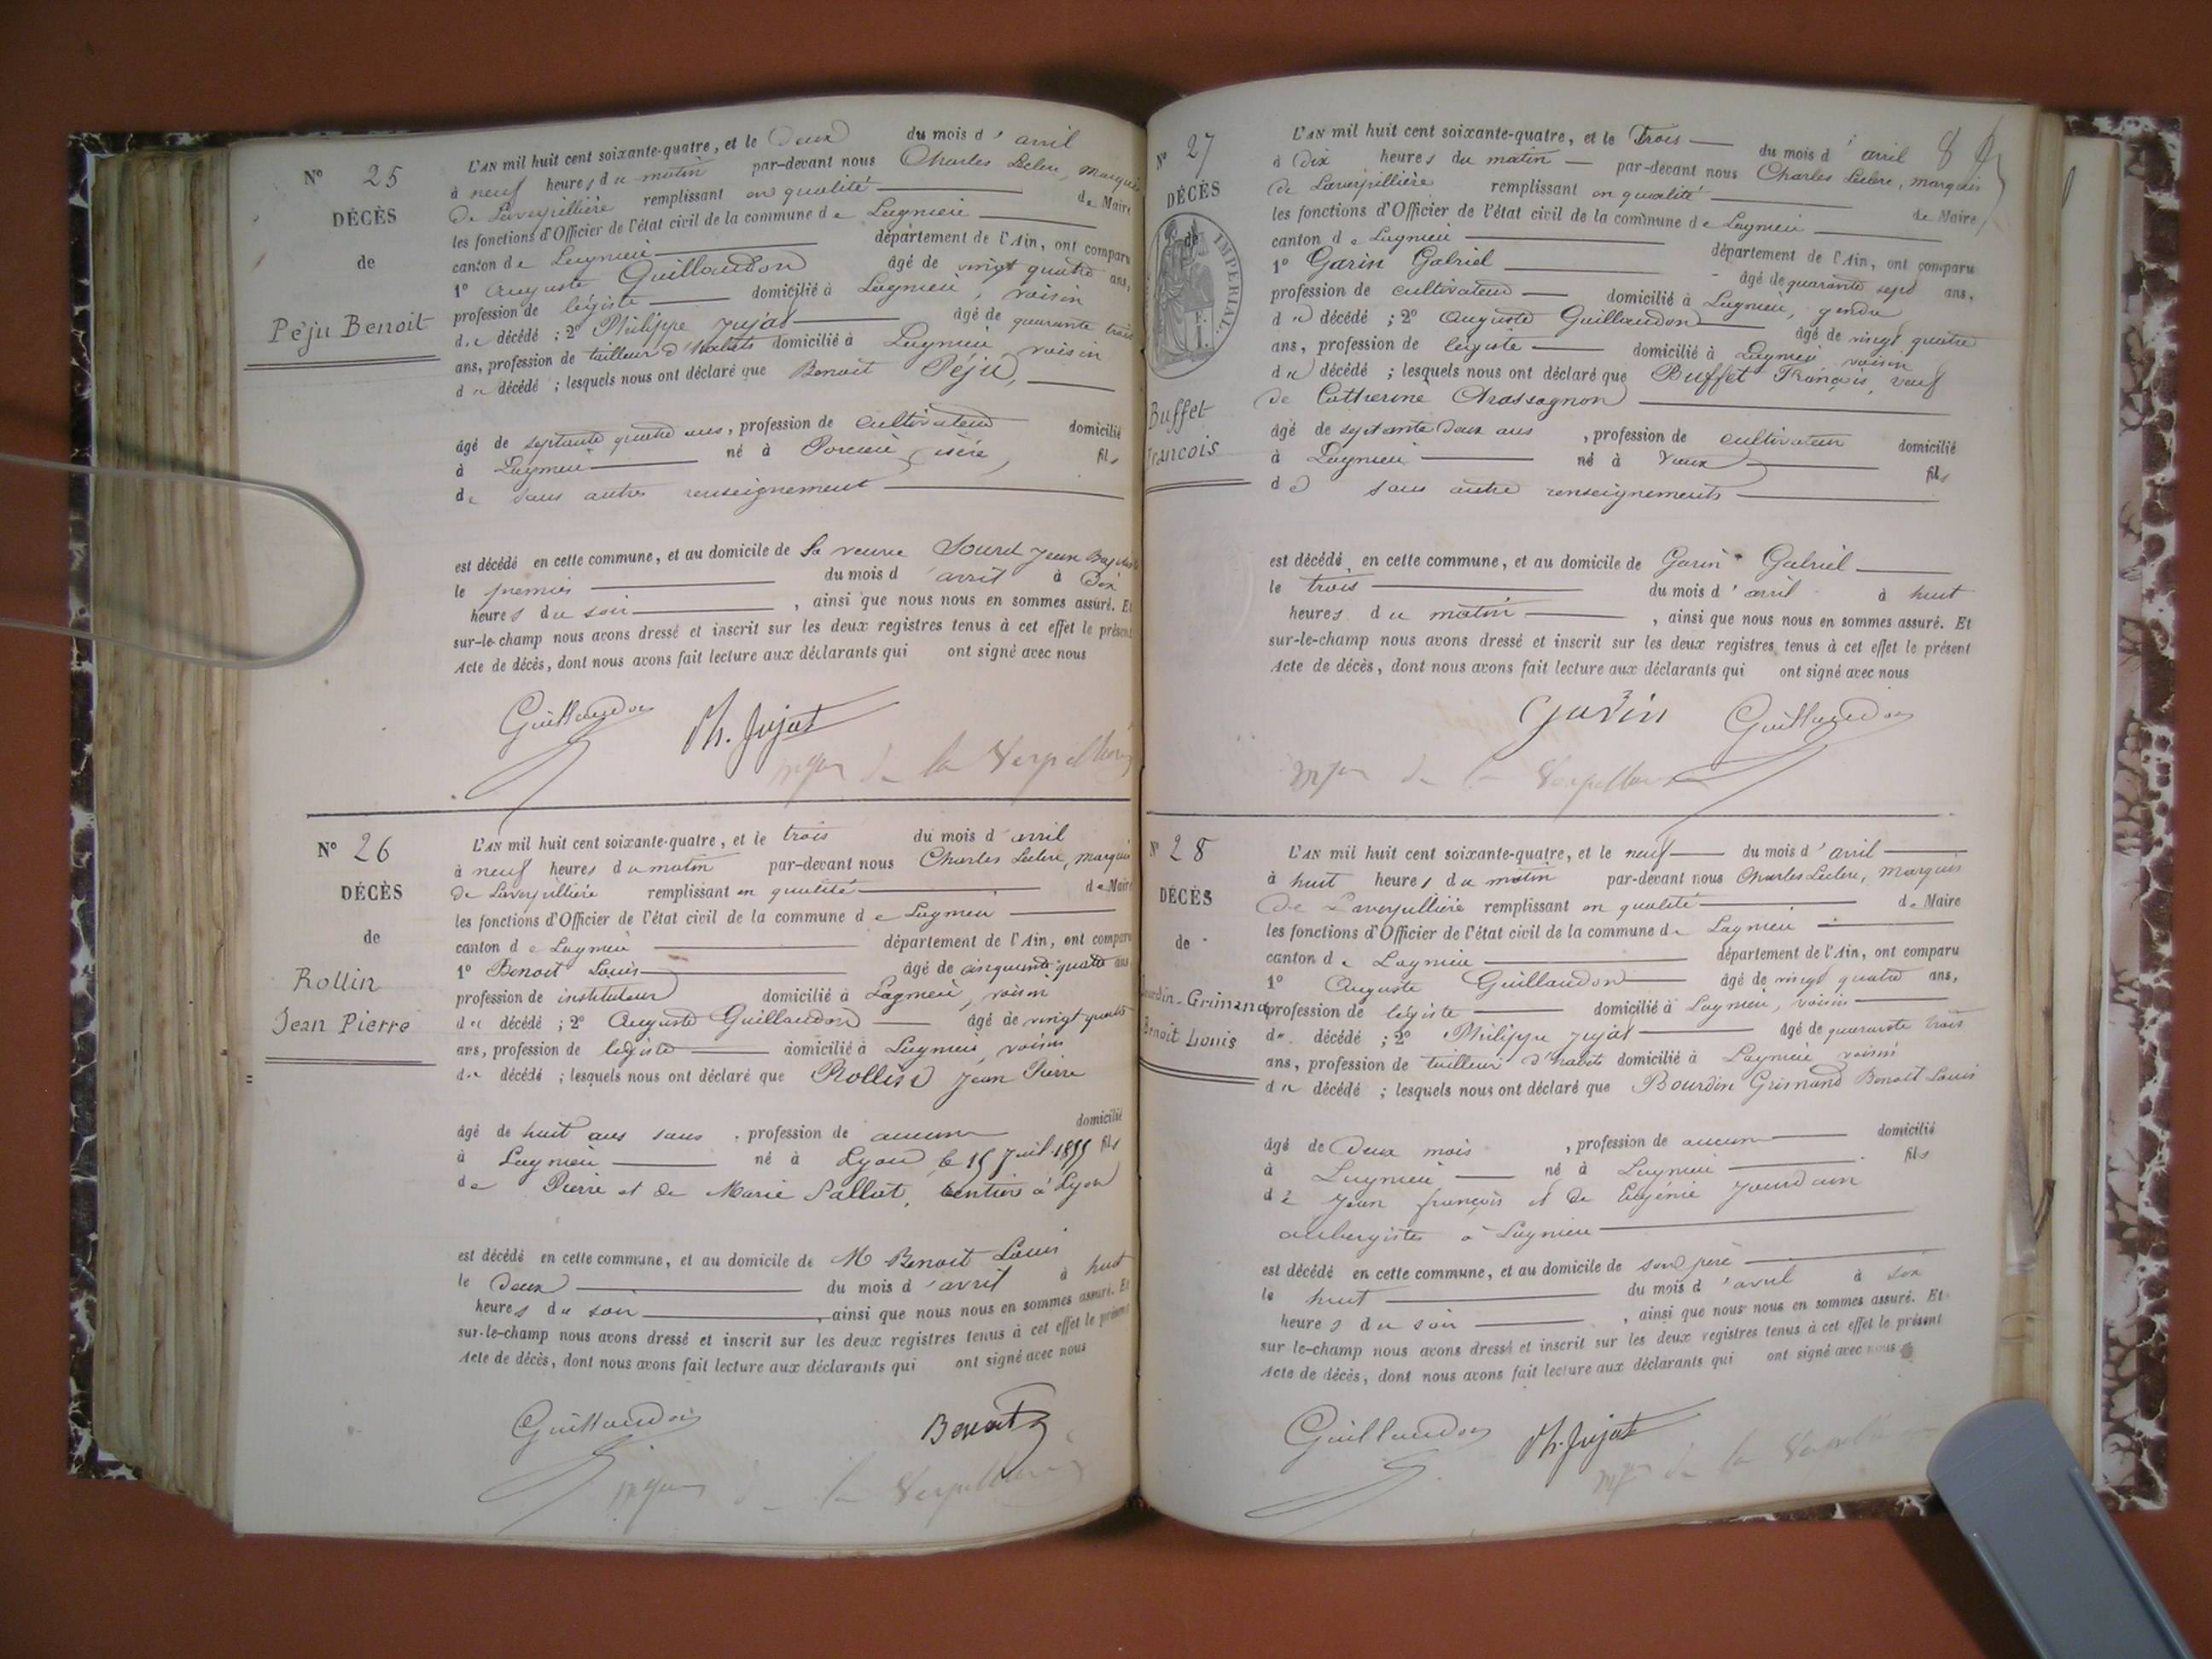 N° 25
DÉCÈS
de
Péju Benoit
L'AN mil huit cent soixante-quatre, et le deux du mois d'avril
à neuf heures du matin par-devant nous Charles Leclerc, marquis
de Laverpillière remplissant en qualité de Maire
les fonctions d'Officier de l'état civil de la commune de Lagnieu
canton de Lagnieu département de l'Ain, ont comparu
1° Auguste Guillaudon âgé de vingt quatre ans,
profession de légiste domicilié à Lagnieu, voisin
du décédé ; 2° Philippe Jujat âgé de quarante trois
ans, profession de tailleur d'habits domicilié à Lagnieu voisin
du décédé ; lesquels nous ont déclaré que Benoit Péju,
âgé de septante quatre ans, profession de cultivateur domicilié
à Lagnieu né à Porcieu, isère, fils
de sans autres renseignement
est décédé en cette commune, et au domicile de la veuve Sourd Jean Baptiste
le premier du mois d'avril à dix
heures du soir, ainsi que nous nous en sommes assuré. Et
sur-le-champ nous avons dressé et inscrit sur les deux registres tenus à cet effet le présent
Acte de décès, dont nous avons fait lecture aux déclarants qui ont signé avec nous
Guillaudon Ph. Jujat
de la Verpillière
N° 26
DÉCÈS
de
Rollin
Jean Pierre
L'AN mil huit cent soixante-quatre, et le trois du mois d'avril
à neuf heures du matin par-devant nous Charles Leclerc, marquis
de Laverpillière remplissant en qualité de Maire
les fonctions d'Officier de l'état civil de la commune de Lagnieu
canton de Lagnieu département de l'Ain, ont comparu
1° Benoit Louis âgé de cinquante quatre ans
profession de instituteur domicilié à Lagnieu, voisin
du décédé ; 2° Auguste Guillaudon âgé de vingt quatre
ans, profession de légiste domicilié à Lagnieu, voisin
du décédé ; lesquels nous ont déclaré que Rollin Jean Pierre
âgé de huit ans sans, profession de aucune domicilié
à Lagnieu né à Lyon le 15 Juil. 1855 fils
de Pierre et de Marie Pallut, rentiers à Lyon
est décédé en cette commune, et au domicile de M Benoit Louis
le deux du mois d'avril à huit
heures du soir, ainsi que nous nous en sommes assuré. Et
sur-le-champ nous avons dressé et inscrit sur les deux registres tenus à cet effet le présent
Acte de décès, dont nous avons fait lecture aux déclarants qui ont signé avec nous
Guillaudon Benoit
de la Verpillière
N° 27
DÉCÈS
de
IMPERIAL.
Buffet
François
L'AN mil huit cent soixante-quatre, et le trois du mois d'avril 8
à dix heures du matin par-devant nous Charles Leclerc, marquis
de Laverpillière remplissant en qualité de Maire
les fonctions d'Officier de l'état civil de la commune de Lagnieu
canton de Lagnieu département de l'Ain, ont comparu
1° Garin Gabriel âgé de quarante sept ans,
profession de cultivateur domicilié à Lagnieu, gendre
du décédé ; 2° Auguste Guillaudon âgé de vingt quatre
ans, profession de légiste domicilié à Lagnieu voisin
du décédé ; lesquels nous ont déclaré que Buffet François, veuf
de Catherine Chassagnon
âgé de septante deux ans, profession de cultivateur domicilié
à Lagnieu né à Vaux fils
de sans autre renseignements
est décédé en cette commune, et au domicile de Garin Gabriel
le trois du mois d'avril à huit
heures du matin, ainsi que nous nous en sommes assuré. Et
sur-le-champ nous avons dressé et inscrit sur les deux registres tenus à cet effet le présent
Acte de décès, dont nous avons fait lecture aux déclarants qui ont signé avec nous
Garin Guillaudon
de la Verpillière
N° 28
DÉCÈS
de
Bourdin-Grimand
Benoit Louis
L'AN mil huit cent soixante-quatre, et le neuf du mois d'avril
à huit heures du matin par-devant nous Charles Leclerc, marquis
de Laverpillière remplissant en qualité de Maire
les fonctions d'Officier de l'état civil de la commune de Lagnieu
canton de Lagnieu département de l'Ain, ont comparu
1° Auguste Guillaudon âgé de vingt quatre ans,
profession de légiste domicilié à Lagnieu, voisin
du décédé ; 2° Philippe Jujat âgé de quarante trois
ans, profession de tailleur d'habits domicilié à Lagnieu voisin
du décédé ; lesquels nous ont déclaré que Bourdin Grimand Benoit Louis
âgé de deux mois, profession de aucune domicilié
à Lagnieu né à Lagnieu fils
de Jean françois et de Eugénie Jourdain
aubergistes à Lagnieu
est décédé en cette commune, et au domicile de son père
le huit du mois d'avril à six
heures du soir, ainsi que nous nous en sommes assuré. Et
sur le-champ nous avons dressé et inscrit sur les deux registres tenus à cet effet le présent
Acte de décès, dont nous avons fait lecture aux déclarants qui ont signé avec nous
Guillaudon Ph. Jujat
de la Verpillière